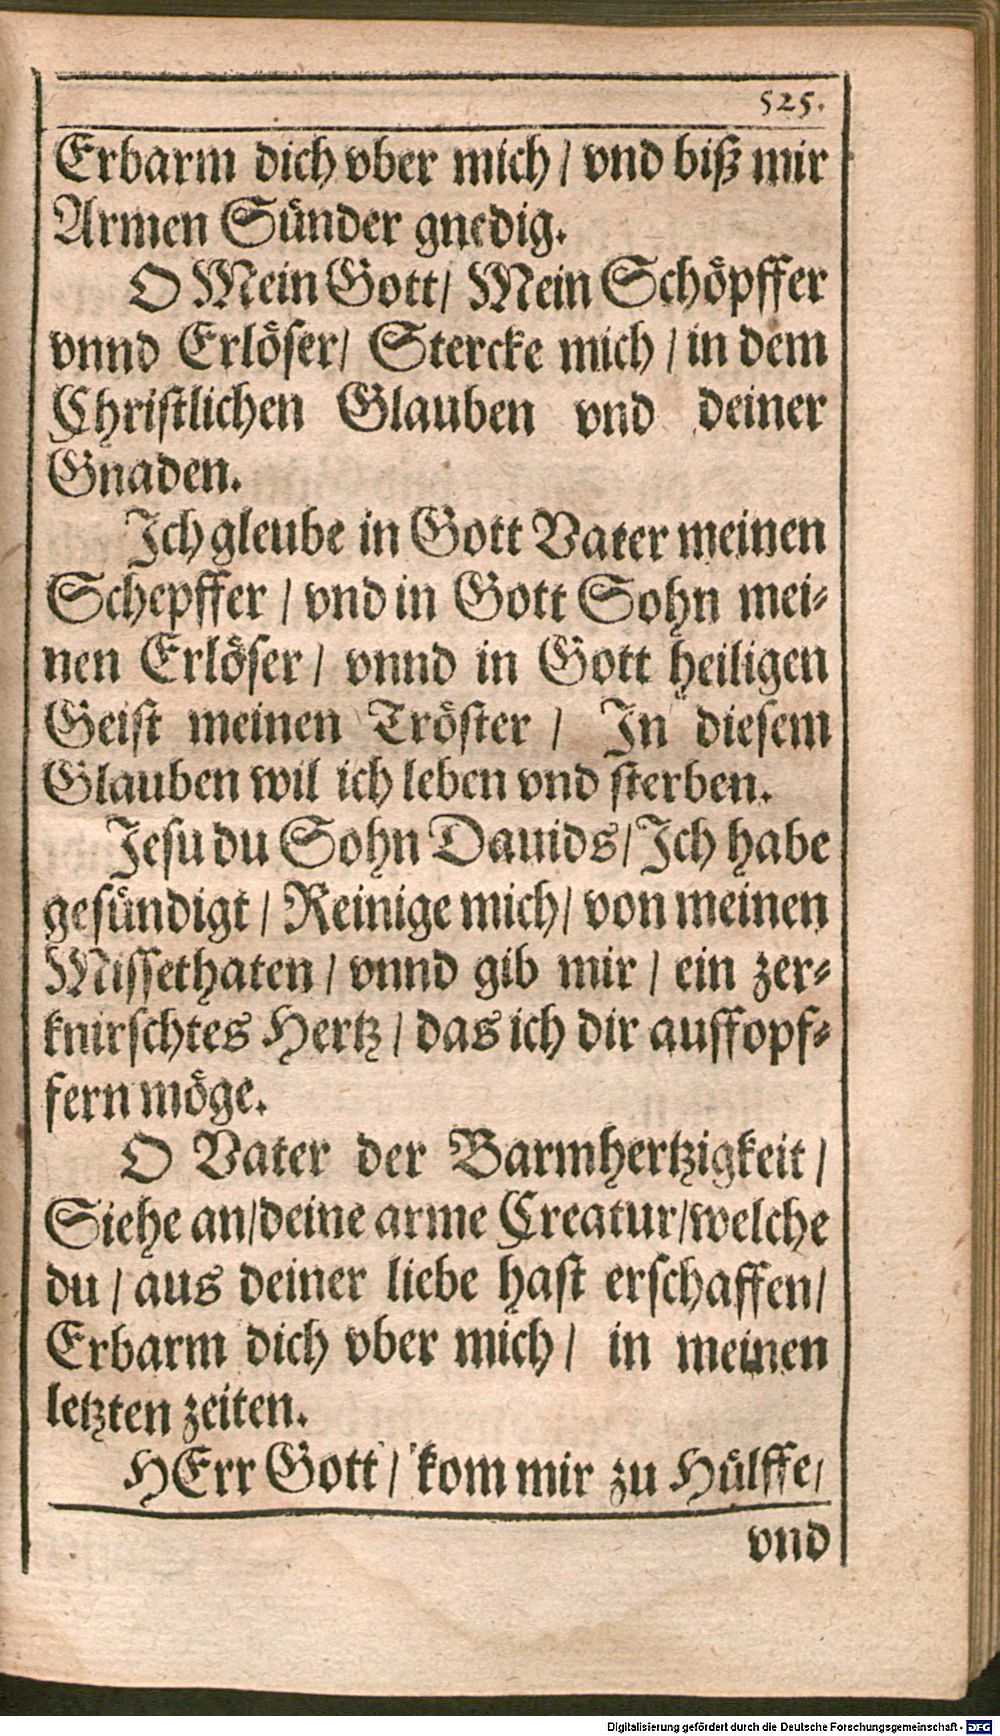 525.
Erbarm dich vber mich / vnd biß mir
Armen Sünder gnedig.
O Mein Gott / Mein Schöpffer
vnnd Erlöser / Stercke mich / in dem
Christlichen Glauben vnd deiner
Gnaden.
Ich gleube in Gott Vater meinen
Schepffer / vnd in Gott Sohn mei-
nen Erlöser / vnnd in Gott heiligen
Geist meinen Tröster / In diesem
Glauben wil ich leben vnd sterben.
Jesu du Sohn Dauids / Ich habe
gesündigt / Reinige mich / von meinen
Missethaten / vnnd gib mir / ein zer-
knirschtes Hertz / das ich dir auffopf-
fern möge.
O Vater der Barmhertzigkeit /
Siehe an / deine arme Creatur / welche
du / aus deiner liebe hast erschaffen /
Erbarm dich vber mich / in meinen
letzten zeiten.
HErr Gott / kom mir zu Hülffe /
vnd
Digitalisierung gefördert durch die Deutsche Forschungsgemeinschaft - DFG